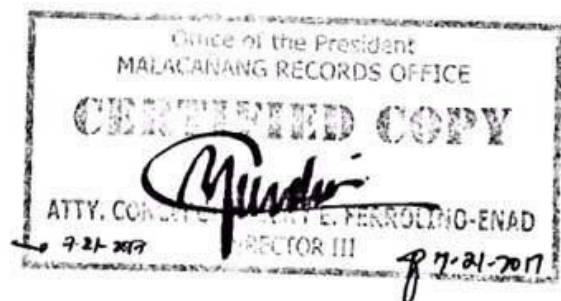 Office of the President
MALACANANG RECORDS OFFICE
CERTIFIED COPY
ATTY. E. FERROLINO-ENAD
DIRECTOR III
7-21-2017
7-21-2017